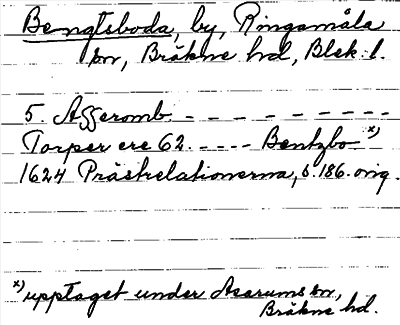 Bengtsboda, by, Ringamåla
sn, Bräkne hd, Blek. l.
5. Aggeromb - - - - - - - - -
Torper ere 62. - - - - Bentzbo x)
1624 Prästrelationerna, s. 186. orig.
x) upptaget under Asarums sn,
Bräkne hd.